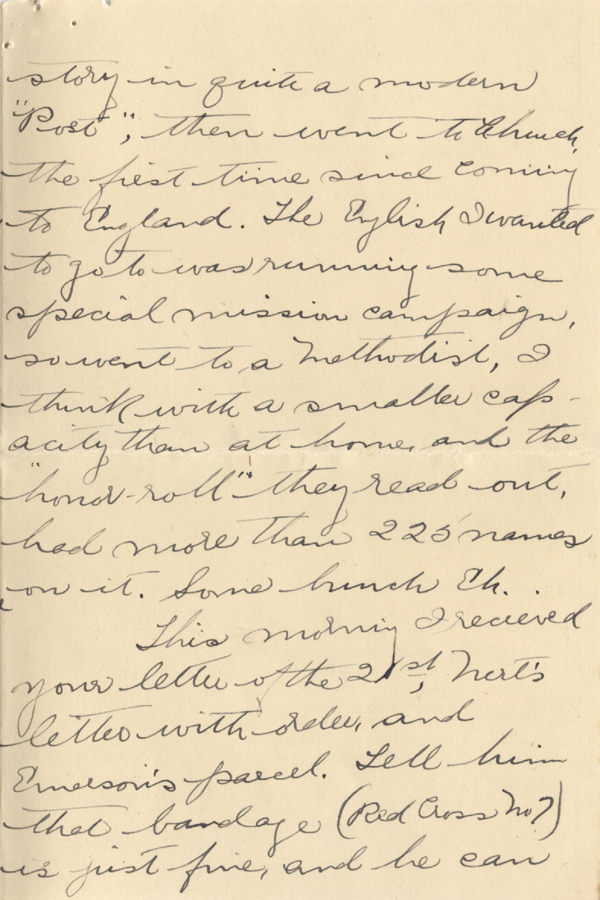 story in quite a modern
"Post", then went to Church,
the first time since coming
to England. The English I wanted
to go to was running some
special mission campaign,
so went to a Methodist, I
think with a smaller cap-
acity than at home, and the
"honor-roll" they read out,
had more than 225 names
on it. Some bunch Eh.
This morning I recieved
your letter of the 21st, Nert's
letter with order, and
Emerson's parcel. Tell him
that bandage (Red Cross No 7)
is just fine, and he can